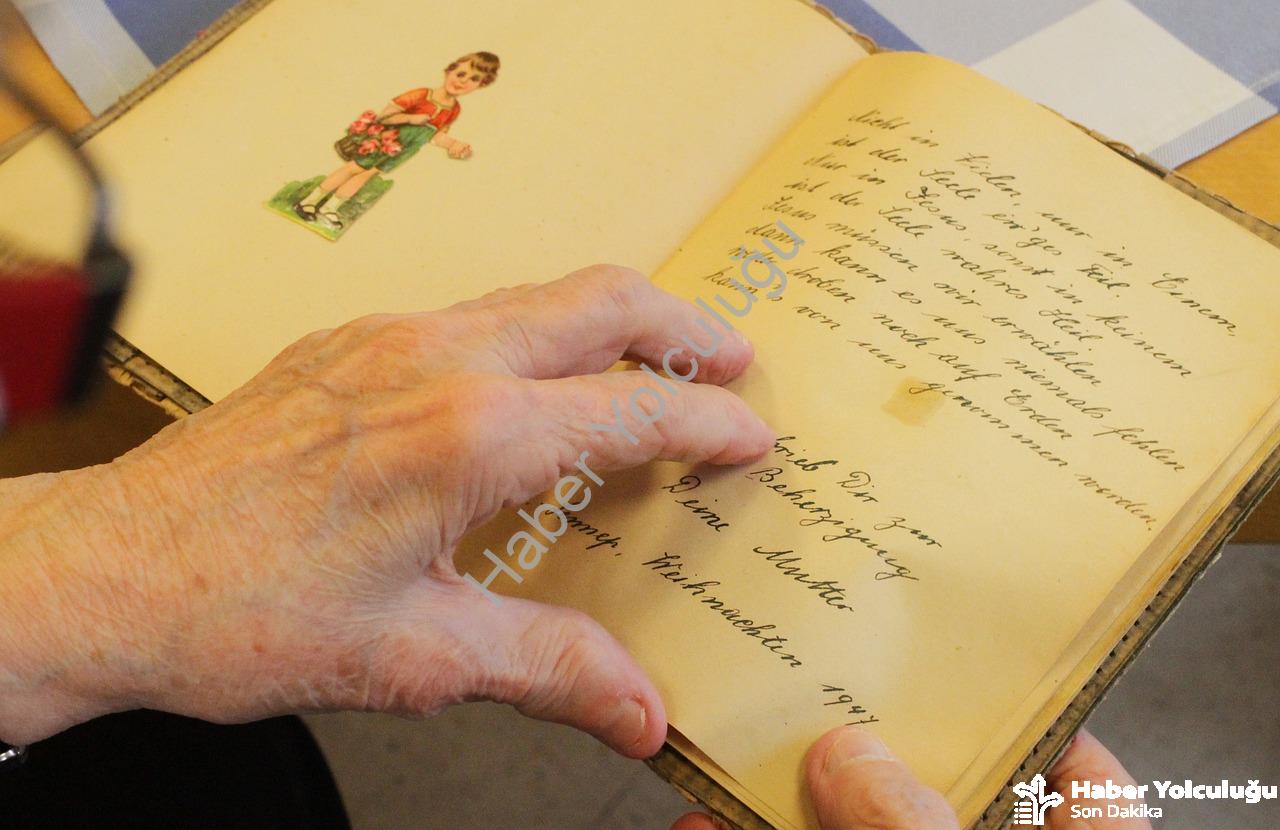 Nicht in Vielen, nur in Einem,
ist der Seele ew'ges Teil.
Nur in Jesus, sonst in keinem
ist der Seele wahres Heil
Jesus müssen wir erwählen
dann kann es uns niemals fehlen
droben noch auf Erden
kann von uns genommen werden.
schrieb Dir zur
Beherzigung
Deine Mutter
Weihnachten 1947
Haber Yolculuğu
Haber Yolculuğu
Son Dakika